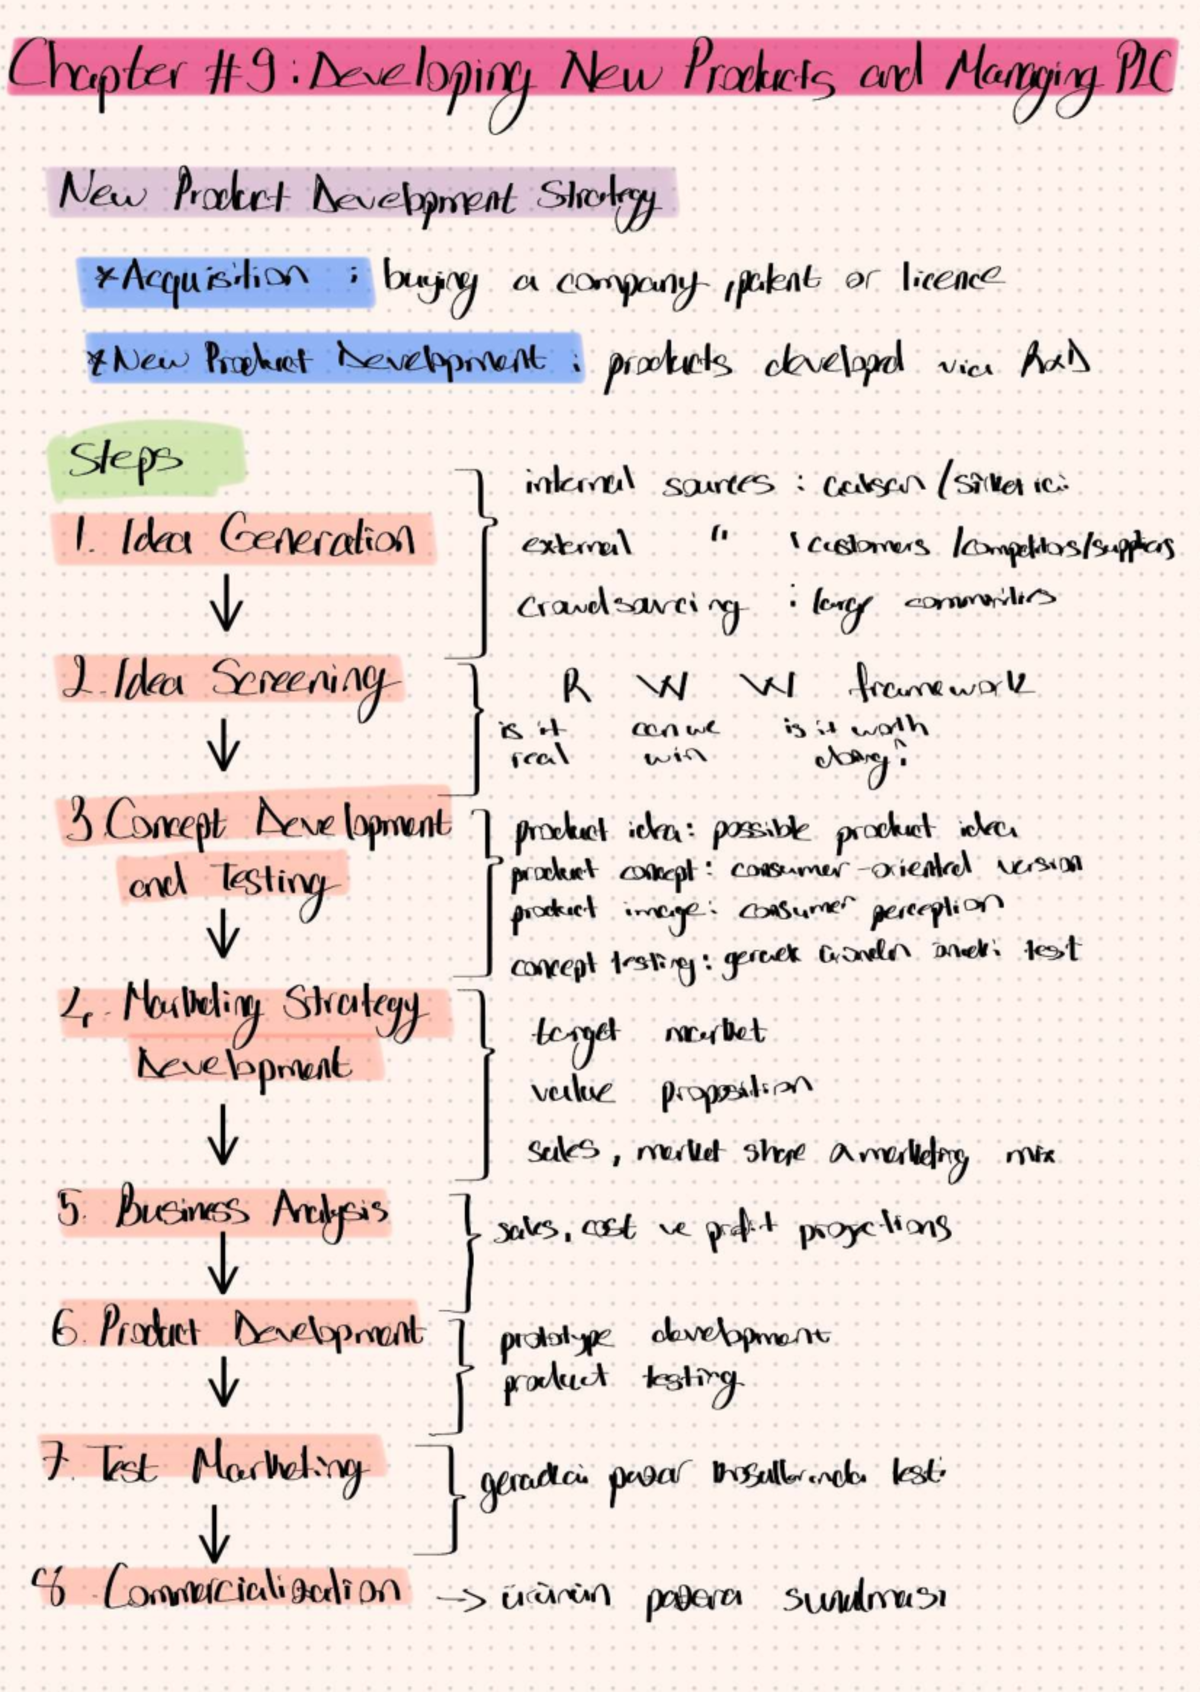 Chapter #9: Developing New Products and Managing PLC
New Product Development Strategy
*Acquisition : buying a company, patent or licence
*New Product Development : products developed via R&D
Steps
1. Idea Generation
internal sources : calisan / sirket ici
external " : customers / competitors / suppliers
crowdsourcing : large communities
2. Idea Screening
R W W framework
is it can we is it worth
real win doing?
3. Concept Development
and Testing
product idea: possible product idea
product concept: consumer-oriented version
product image: consumer perception
concept testing: gercek üründen önceki test
4. Marketing Strategy
Development
target market
value proposition
sales, market share marketing mix
5. Business Analysis
sales, cost ve profit projections
6. Product Development
prototype development
product testing
7. Test Marketing
pazar testi
8 Commercialization -> ürünün pazara sunulması